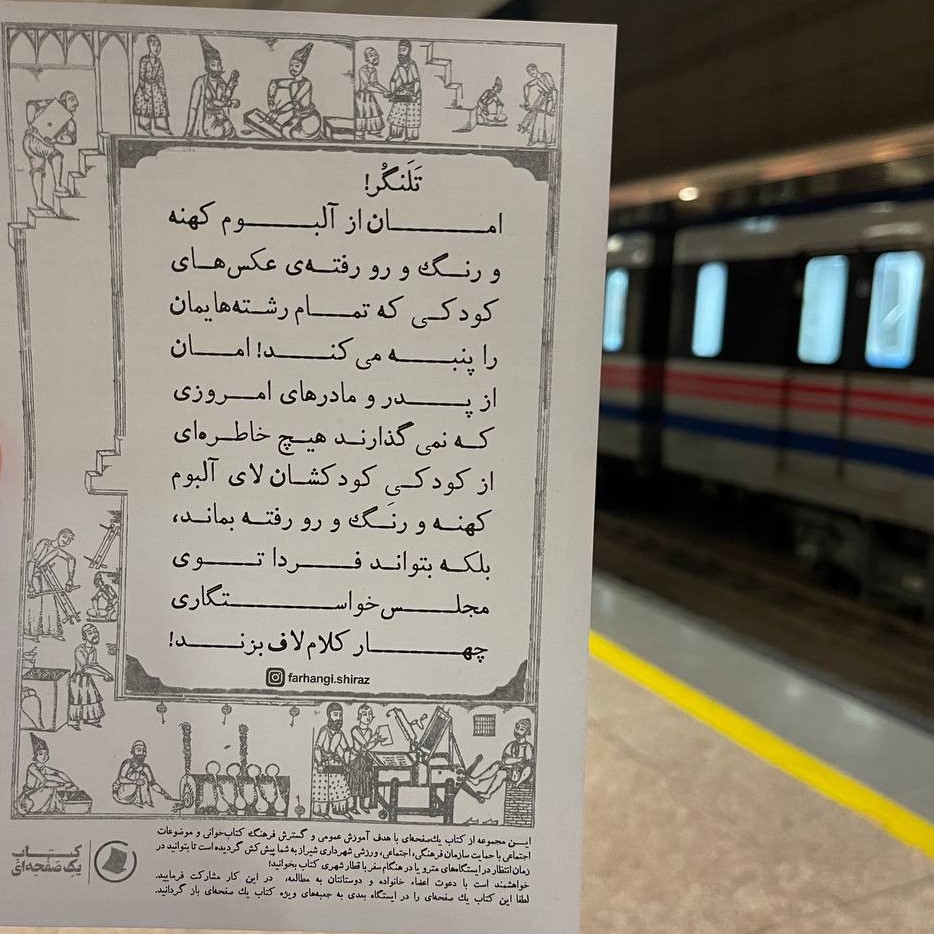 تَلَنگُر!
امان از آلبوم کهنه
و رنگ و رو رفته‌ی عکس‌های
کودکی که تمام رشته‌هایمان
را پنبه می‌کند! امان
از پدر و مادرهای امروزی
که نمی‌گذارند هیچ خاطره‌ای
از کودکی کودکشان لای آلبوم
کهنه و رنگ و رو رفته بماند،
بلکه بتواند فردا توی
مجلس خواستگاری
چهار کلام لاف بزند!
farhangi.shiraz
این مجموعه از کتاب یك‌صفحه‌ای با هدف آموزش عمومی و گسترش فرهنگ کتاب‌خوانی و موضوعات
اجتماعی با حمایت سازمان فرهنگی، اجتماعی، ورزشی شهرداری شیراز به شما پیش‌کش گردیده است تا بتوانید در
زمان انتظار در ایستگاه‌های مترو یا در هنگام سفر با قطار شهری کتاب بخوانید؛
خواهشمند است با دعوت اعضاء خانواده و دوستانتان به مطالعه، در این کار مشارکت فرمایید.
لطفا این کتاب یك صفحه‌ای را در ایستگاه بعدی به جعبه‌های ویژه کتاب یك صفحه‌ای باز گردانید.
کتاب
یک‌صفحه‌ای